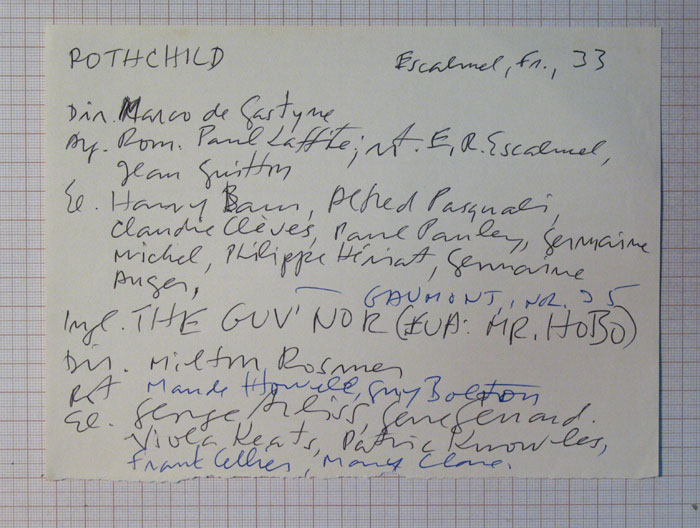 ROTHCHILD Escalmel, Fr., 33
Dir. Marco de Gastyne
Ay. Rom. Paul Laffite; Ad. E, R. Escalmel,
Jean Guitton
El. Harry Baur, Alfred Pasquali,
Claudie Clèves, Paul Pauley, Germaine
Michel, Philippe Hériat, Germaine
Auger,
GAUMONT, INR. 35
Ingl. THE GUV'NOR (EUA: MR. HOBO)
Dir. Milton Rosmer
Rot Maude Howell, Guy Bolton
El. George Arliss, Gene Gerrard.
Viola Keats, Patric Knowles,
Frank Cellier, Mary Clare.